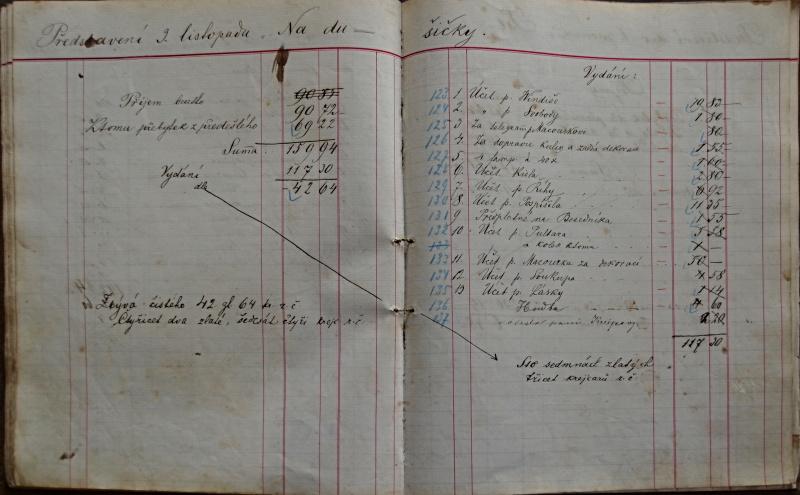 Představení 9. listopadu. Na du — šičky.
90 85
Příjem brutto 90 72
K tomu přebytek z předešlého 69 22
Suma 159 94
Vydání 117 30
dle 42 64
Zbývá čistého 42 zl 64 kr r. č
Čtyřicet dva zlaté, šedesát čtyři krejc r. č
Vydání:
123 1. Účet p. Windiše 19 83
124 2. " p. Svobody 1 80
125 3. Za telegram p. Macourkovi 80
126 4. Za dopravu kulis a zadu dekorací 1 55
127 5. 1 60
128 6. Účet Kúla 2 80
129 7. Účet p. Říhy 6 92
130 8. Účet p. Pospíšila 11 35
131 9 Předplatné na Besedníka 1 55
132 10. Účet p. Pultara 5 58
a kolek k tomu 1 —
133 11. Účet p. Macourka za dekoraci 50 —
134 12. Účet p. Soukupa 4 58
135 13 Účet p. Lásky 1 14
136 Hudba 4 60
137 2 20
117 30
Sto sedmnáct zlatých
třicet krejcarů r. č